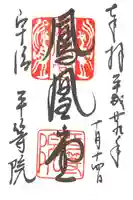 奉拝 平成廿九年
十月十四日
鳳凰堂
宇治 平等院